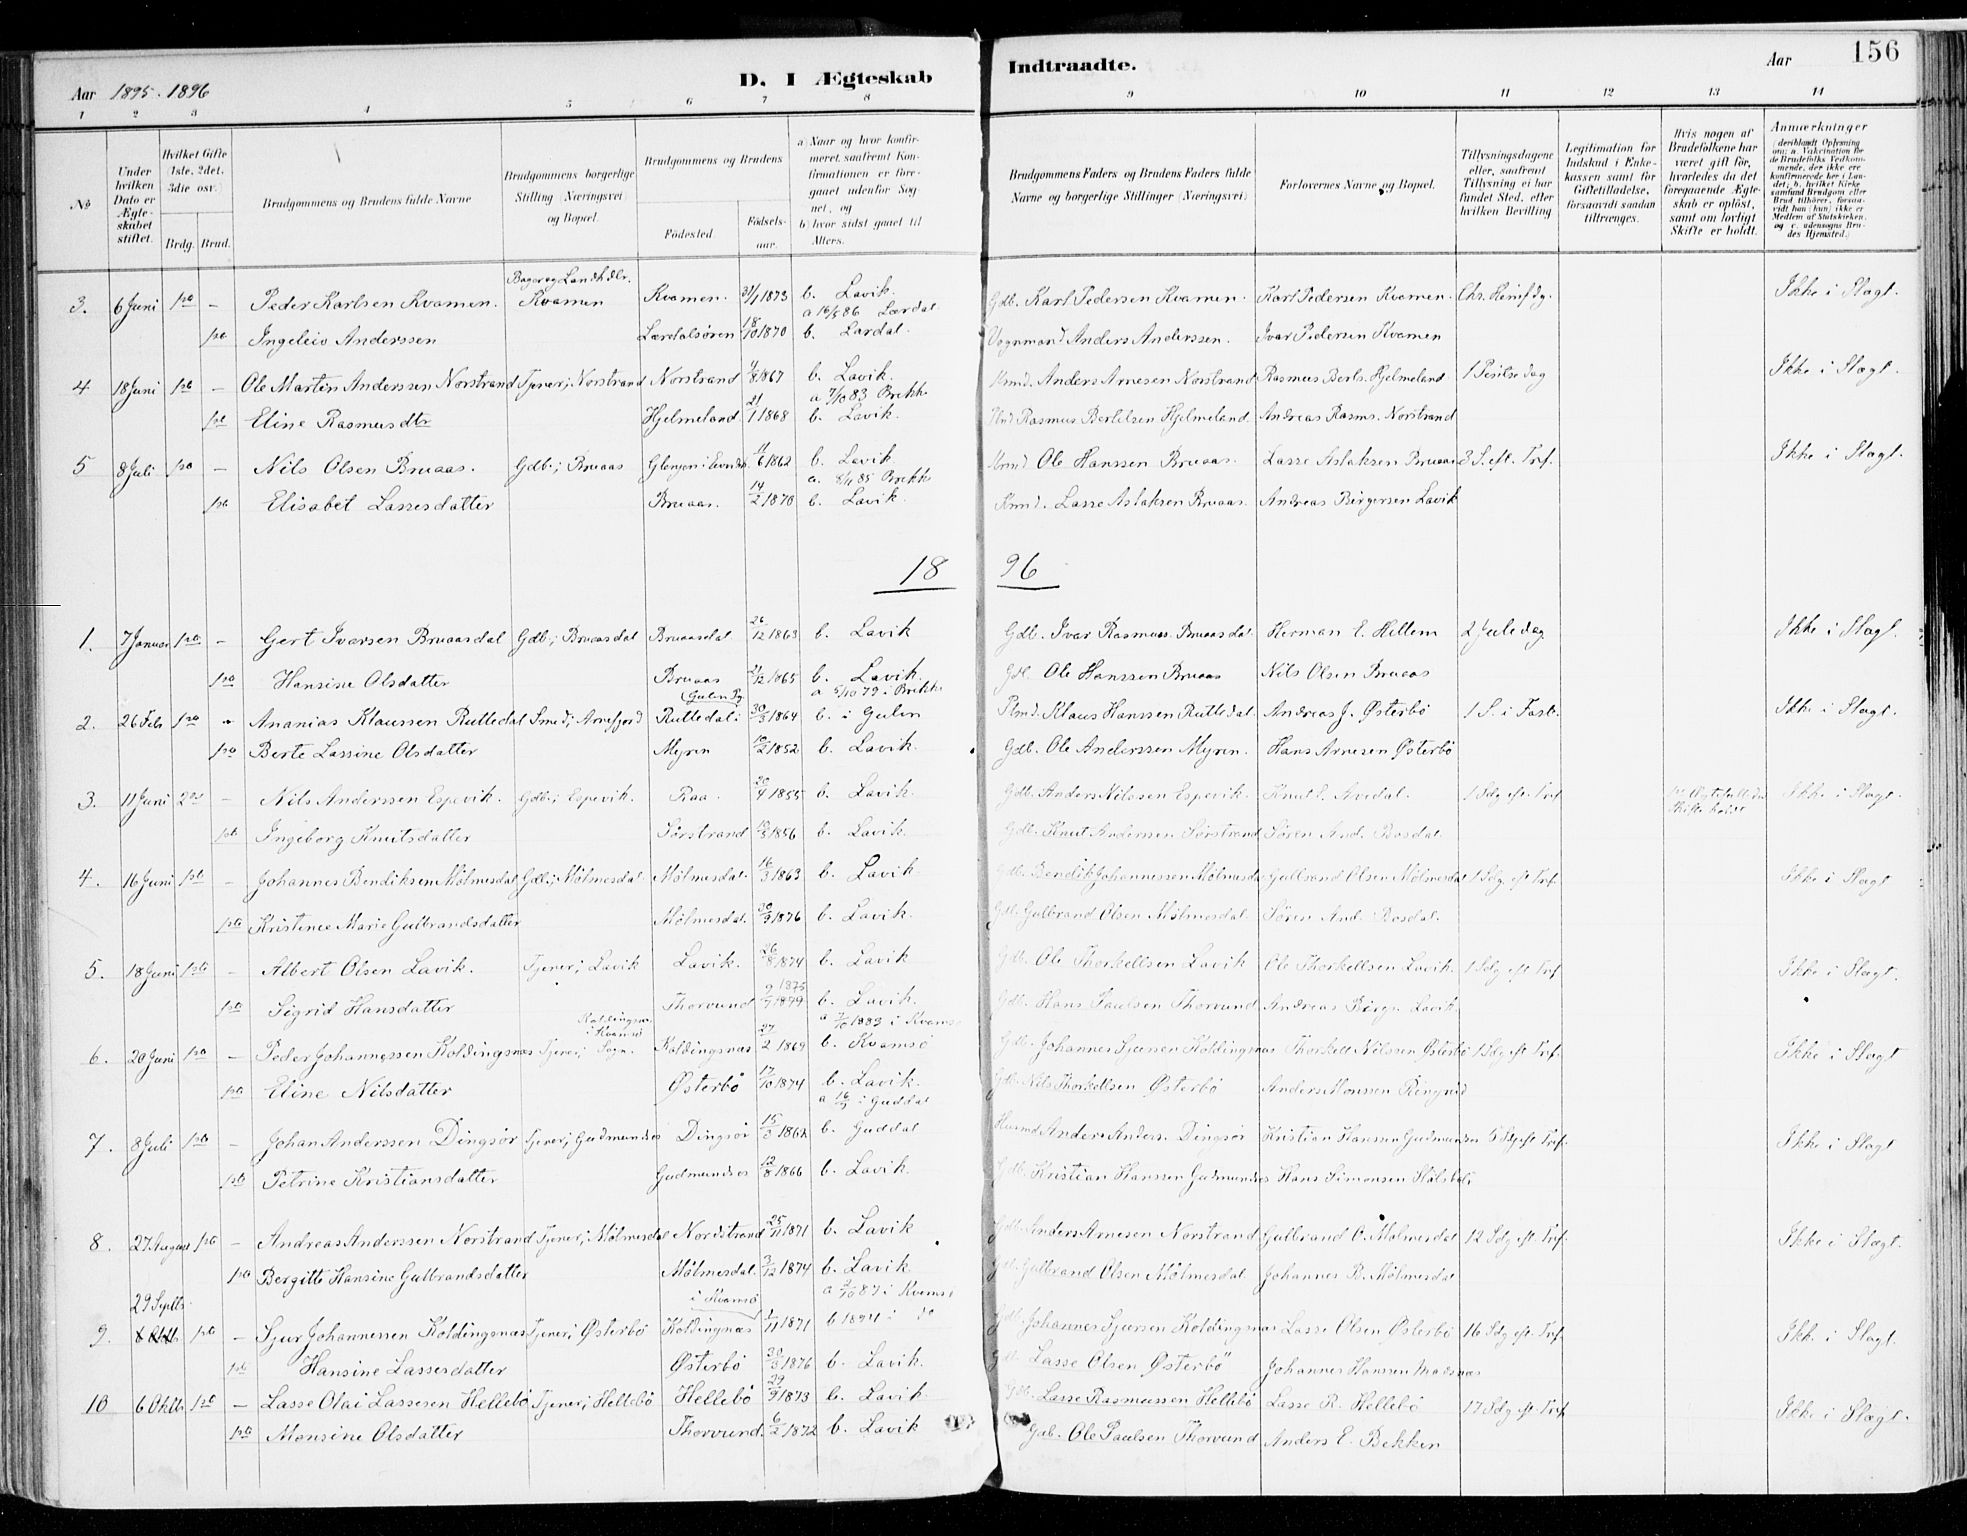 Aar 1895-1896 D. I Ægteskab Indtraadte. Aar 156
1 2 3 4 5 6 7 8 9 10 11 12 13 14
№
Under hvilken Dato er Ægteskabet stiftet.
Hvilket Gifte (1ste, 2det, 3die osv.)
Brdg. Brud.
Brudgommens og Brudens fulde Navne
Brudgommens borgerlige Stilling (Næringsvei) og Bopæl.
Brudgommens og Brudens
Fødested. Fødselsaar.
a) Naar og hvor konfirmeret, saafremt Konfirmationen er foregaaet udenfor Sognet, og
b) hvor sidst gaaet til Alters.
Brudgommens Faders og Brudens Faders fulde Navne og borgerlige Stillinger (Næringsvei)
Forlovernes Navne og Bopæl.
Tillysningsdagene eller, saafremt Tillysning ei har fundet Sted, efter hvilken Bevilling
Legitimation for Indskud i Enkekassen samt for Giftetilladelse, forsaavidt saadan tiltrænges.
Hvis nogen af Brudefolkene har været gift før, hvorledes da det foregaaende Ægteskab er opløst, samt om lovligt Skifte er holdt.
Anmærkninger (deriblandt Oplysning om: a. Vakcination for de Brudefolks Vedkommende, der ikke ere konfirmerede her i Landet; b. hvilket Kirkesamfund Brudgom eller Brud tilhører, forsaavidt han (hun) ikke er Medlem af Statskirken, og c. udensogns Brudes Hjemsted.)
3. 6 Juni 1ste - Peder Karlsen Kvamen. Bager og Landhdlr. Kvamen Kvamen. 31/1 1873 b. Lavik. Gdb. Karl Pedersen Kvamen. Karl Pedersen Kvamen. Chr. Himfdg. Ikke i Slægt.
1ste Ingeleiv Anderssen Lærdalsøren 18/10 1870 a 16/5 86 Lærdal b. Lærdal. Vognmand Anders Anderssen. Ivar Pedersen Kvamen
4 18 Juni 1ste - Ole Martin Anderssen Norstrand Tjener, Norstrand Norstrand 4/8 1867 b. Lavik. Anders Arnesen Norstrand Rasmus Bertls. Hjelmeland 1 Pintse dag Ikke i Slægt.
1ste Eline Rasmusdtr Hjelmeland 21/1 1868 a 7/10 83 Brekke b. Lavik. Rasmus Bertelsen Hjelmeland. Andreas Rasms. Norstrand
5 8 Juli 1ste - Nils Olsen Bruaas. Gdb., Bruaas 1862 b. Lavik Ole Hanssen Bruaas. Lasse Aslaksen Bruaas 3 S. eft. Tref. Ikke i Slægt.
1ste Elisabet Lassesdatter Bruaas. 14/2 1870 a. 85 Brekke b. Lavik. Lasse Aslaksen Bruaas. Andreas Birgersen Lavik
18 96
1. 7 Januar 1ste - Gert Ivarsen Bruaasdal Gdb., Bruaasdal Bruaasdal 26/12 1863 b. Lavik Gdb. Ivar Rasmuss. Bruaasdal. Herman E. Hillem 2 Juledag Ikke i Slægt.
1ste Hansine Olsdatter Bruaas 21/12 1865 b. Lavik. Gdb. Ole Hanssen Bruaas Nils Olsen Bruaas
2. 26 Febr 1ste - Ananias Klaussen Rutledal Smed, Arnefjord Rutledal (Gulen Pg. 30/3 1864 a 5/10 79 i Brekke b. i Gulen Klaus Hanssen Rutledal. Andreas J. Østerbø 1 S. i Fast. Ikke i Slægt.
1ste Berte Lassine Olsdatter Myren 10/2 1852 b. Lavik. Gdb. Ole Anderssen Myren. Hans Arnesen Østerbø
3. 11 Juni 2det - Nils Anderssen Espevik. Gdb., Espevik. Raa. 20/4 1855 b. Lavik. Gdb. Anders Nilssen Espevik. Knut E. Avedal. 1 Sdg eft. Tref Ikke i Slægt.
1ste Ingeborg Knutsdatter Sørstrand 1856 b. Lavik Gdb. Knut Anderssen Sørstrand Søren And. Bosdal.
4. 16 Juni 1ste - Johannes Bendiksen Mølmesdal Gdb., Mølmesdal Mølmesdal. 16/3 1863 b. Lavik Gdb. Bendik Johannessen Mølmesdal Gulbrand Olsen Mølmesdal 1 Sdg. eft Tref. Ikke i Slægt
1ste Kristence Marie Gulbrandsdatter Mølmesdal. 30/9 1876 b. Lavik. Gdb. Gulbrand Olsen Mølmesdal. Søren And. Bosdal.
5. 18 Juni 1ste - Albert Olsen Lavik. Tjener, Lavik Lavik. 26/8 1874 b. Lavik Gdb. Ole Thorkellsen Lavik Ole Thorkellsen Lavik. 1 Sdg eft Tref Ikke i Slægt.
1ste Sigrid Hansdatter Thorvund 1875 b. Lavik. Gdb. Hans Paulsen Thorvund Andreas Birgs. Lavik.
6. 20 Juni 1ste - Peder Johannessen Koldingsnæs Tjener, Koldingsn. i Kvamsø Sogn. Koldingsnæs 27/2 1869 a 7/10 1883 i Kvamsø b. Kvamsø Gdb. Johannes Sjursen Koldingsnæs Thorkell Nilssen Østerbø 1 Sdg eft Tref. Ikke i Slægt
1ste Eline Nilsdatter Østerbø 17/10 1874 b. Lavik. Gdb. Nils Thorkellsen Østerbø Anders Monssen Ringereid
7. 8 Juli 1ste - Johan Anderssen Dingsør Tjener, Gudmundsø Dingsør 15/3 1862 a i Guddal b. Guddal Husmd Anders Anders. Dingsør Kristian Hansen Gudmundsø 6 Sdg eft Tref. Ikke i Slægt
1ste Petrine Kristiansdatter Gudmundsøs 12/8 1866 b. Lavik. Gdb. Kristian Hanssen Gudmundsø Hans Simonsen
8. 27 August 1ste - Andreas Anderssen Norstrand Tjener, Mølmesdal Nordstrand 25/11 1871 b. Lavik Gdb. Anders Arnesen Norstrand Gulbrand O. Mølmesdal 12 Sdg eft. Tref. Ikke i Slægt.
1ste Bergitte Hansine Gulbrandsdatter Mølmesdal. 3/12 1874 b. Lavik. Gdb. Gulbrand Olsen Mølmesdal. Johannes B. Mølmesdal
9. 29 Septbr. 1ste - Sjur Johannessen Koldingsnæs Tjener, Østerbø i Kvamsø Koldingnæs 1/11 1871 a 87 i Kvamsø b 1894 i do Gdb. Johannes Sjursen Koldingsnæs Lasse Olsen Østerbø 16 Sdg eft. Tref. Ikke i Slægt.
1ste Hansine Lassesdatter Østerbø 30/3 1876 b. Lavik. Gdb. Lasse Olsen Østerbø Johannes Hansen
10 6 Oktb 1ste - Lasse Olai Lassesen Hellebø Tjener, Hellebø Hellebø 29/9 1873 b. Lavik. Gdb. Lasse Rasmussen Hellebø Lasse R. Hellebø 17 Sdg eft. Tref Ikke i Slægt.
1ste Monsine Olsdatter Thorvund. 6/2 1872 b. Lavik Gdb. Ole Paulsen Thorvund Anders E. Bekken